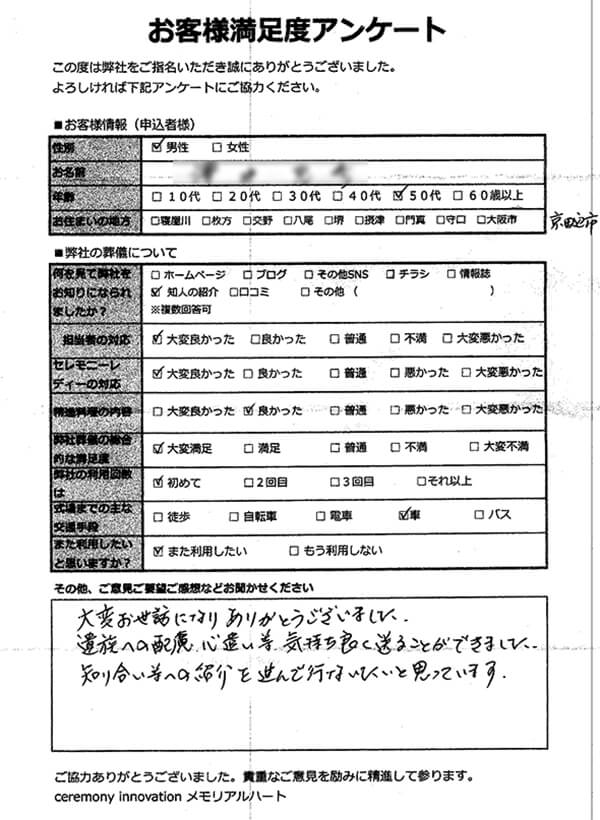 お客様満足度アンケート
この度は弊社をご指名いただき誠にありがとうございました。
よろしければ下記アンケートにご協力ください。
■お客様情報（申込者様）
性別 ☑男性 □女性
お名前
年齢 □10代 □20代 □30代 □40代 ☑50代 □60歳以上
お住まいの地方 □寝屋川 □枚方 □交野 □八尾 □堺 □摂津 □門真 □守口 □大阪市 京田辺市
■弊社の葬儀について
何を見て弊社を □ホームページ □ブログ □その他SNS □チラシ □情報誌
お知りになられ ☑知人の紹介 □口コミ □その他（ ）
ましたか？ ※複数回答可
担当者の対応 ☑大変良かった □良かった □普通 □不満 □大変悪かった
セレモニーレ
ディーの対応 ☑大変良かった □良かった □普通 □悪かった □大変悪かった
精進料理の内容 □大変良かった ☑良かった □普通 □悪かった □大変悪かった
弊社葬儀の総合
的な満足度 ☑大変満足 □満足 □普通 □不満 □大変不満
弊社の利用回数
は ☑初めて □2回目 □3回目 □それ以上
式場までの主な
交通手段 □徒歩 □自転車 □電車 ☑車 □バス
また利用したい
と思いますか？ ☑また利用したい □もう利用しない
その他、ご意見ご要望ご感想などお聞かせください
大変お世話になりありがとうございました。
遺族への配慮、心遣い等、気持ち良く送ることができました。
知り合い等への紹介を進んで行ないたいと思っています。
ご協力ありがとうございました。貴重なご意見を励みに精進して参ります。
ceremony innovation メモリアルハート